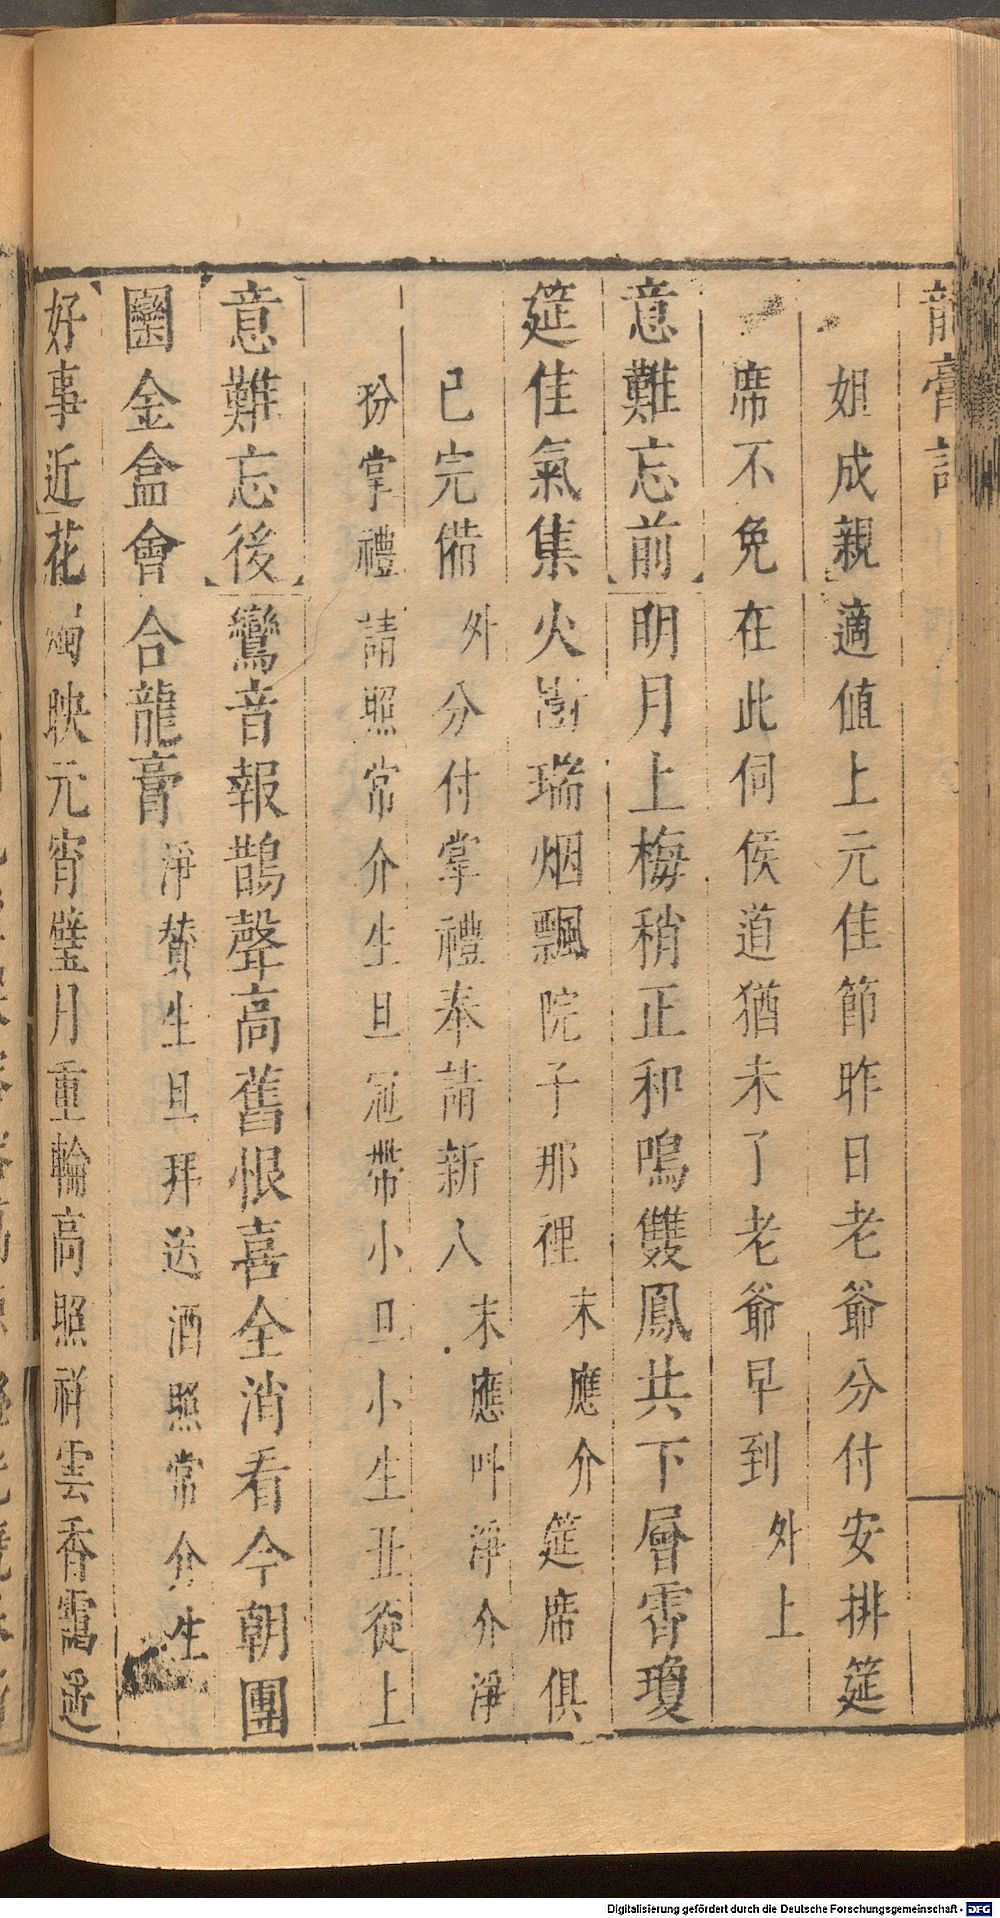 龍膏記
姐成親適值上元佳節昨日老爺分付安排筵
席不免在此伺侯道猶未了老爺早到外上
意難忘前明月上梅稍正和鳴雙鳳共下層霄瓊
筵佳氣集火樹瑞烟飄院子那裡末應介筵席俱
已完備外分付掌禮奉請新人末應叫淨介淨
扮掌禮請照常介生旦冠帶小旦小生丑從上
意難忘後鸞音報鵲聲高舊恨喜全消看今朝團
圞金盒會合龍膏淨贊生旦拜送酒照常介生
好事近花燭映元宵璧月重輪高照祥雲香靄遥
Digitalisierung gefördert durch die Deutsche Forschungsgemeinschaft - DFG